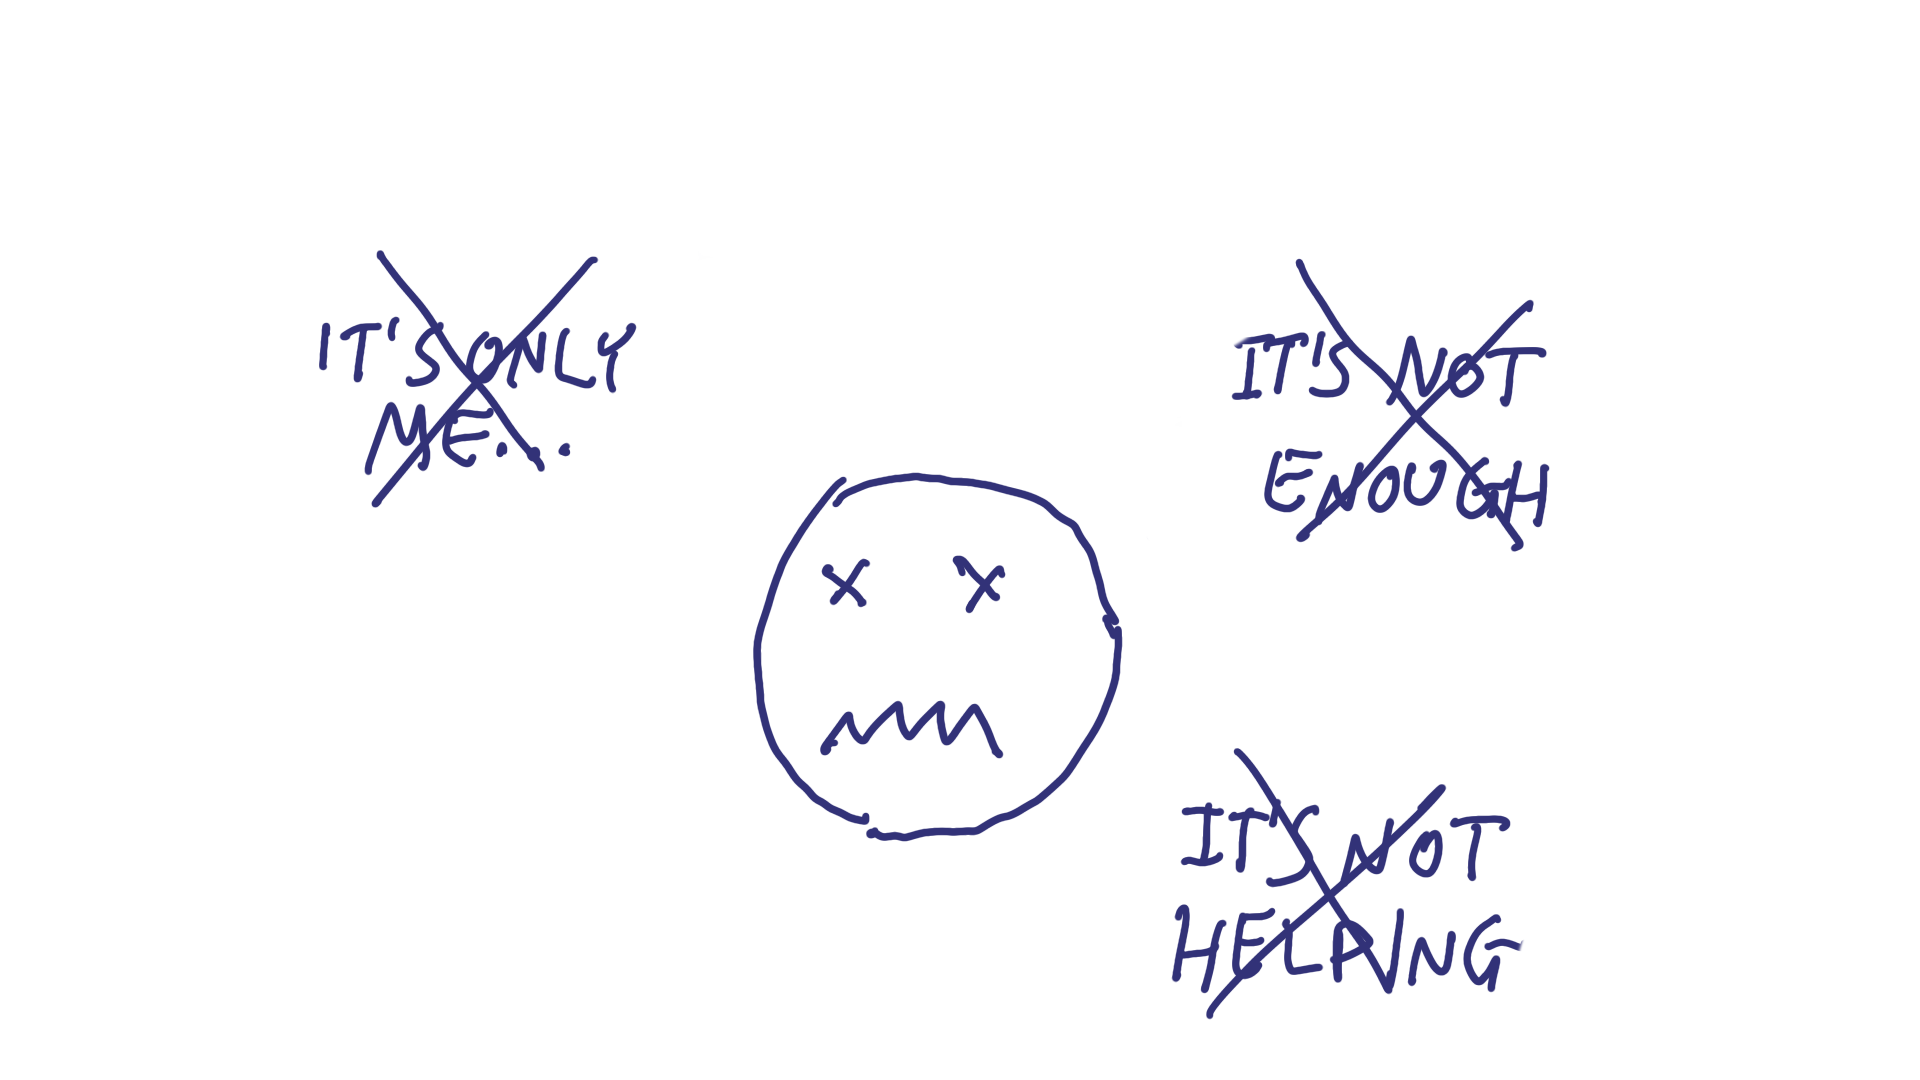 IT'S ONLY
ME...
IT'S NOT
ENOUGH
IT'S NOT
HELPING